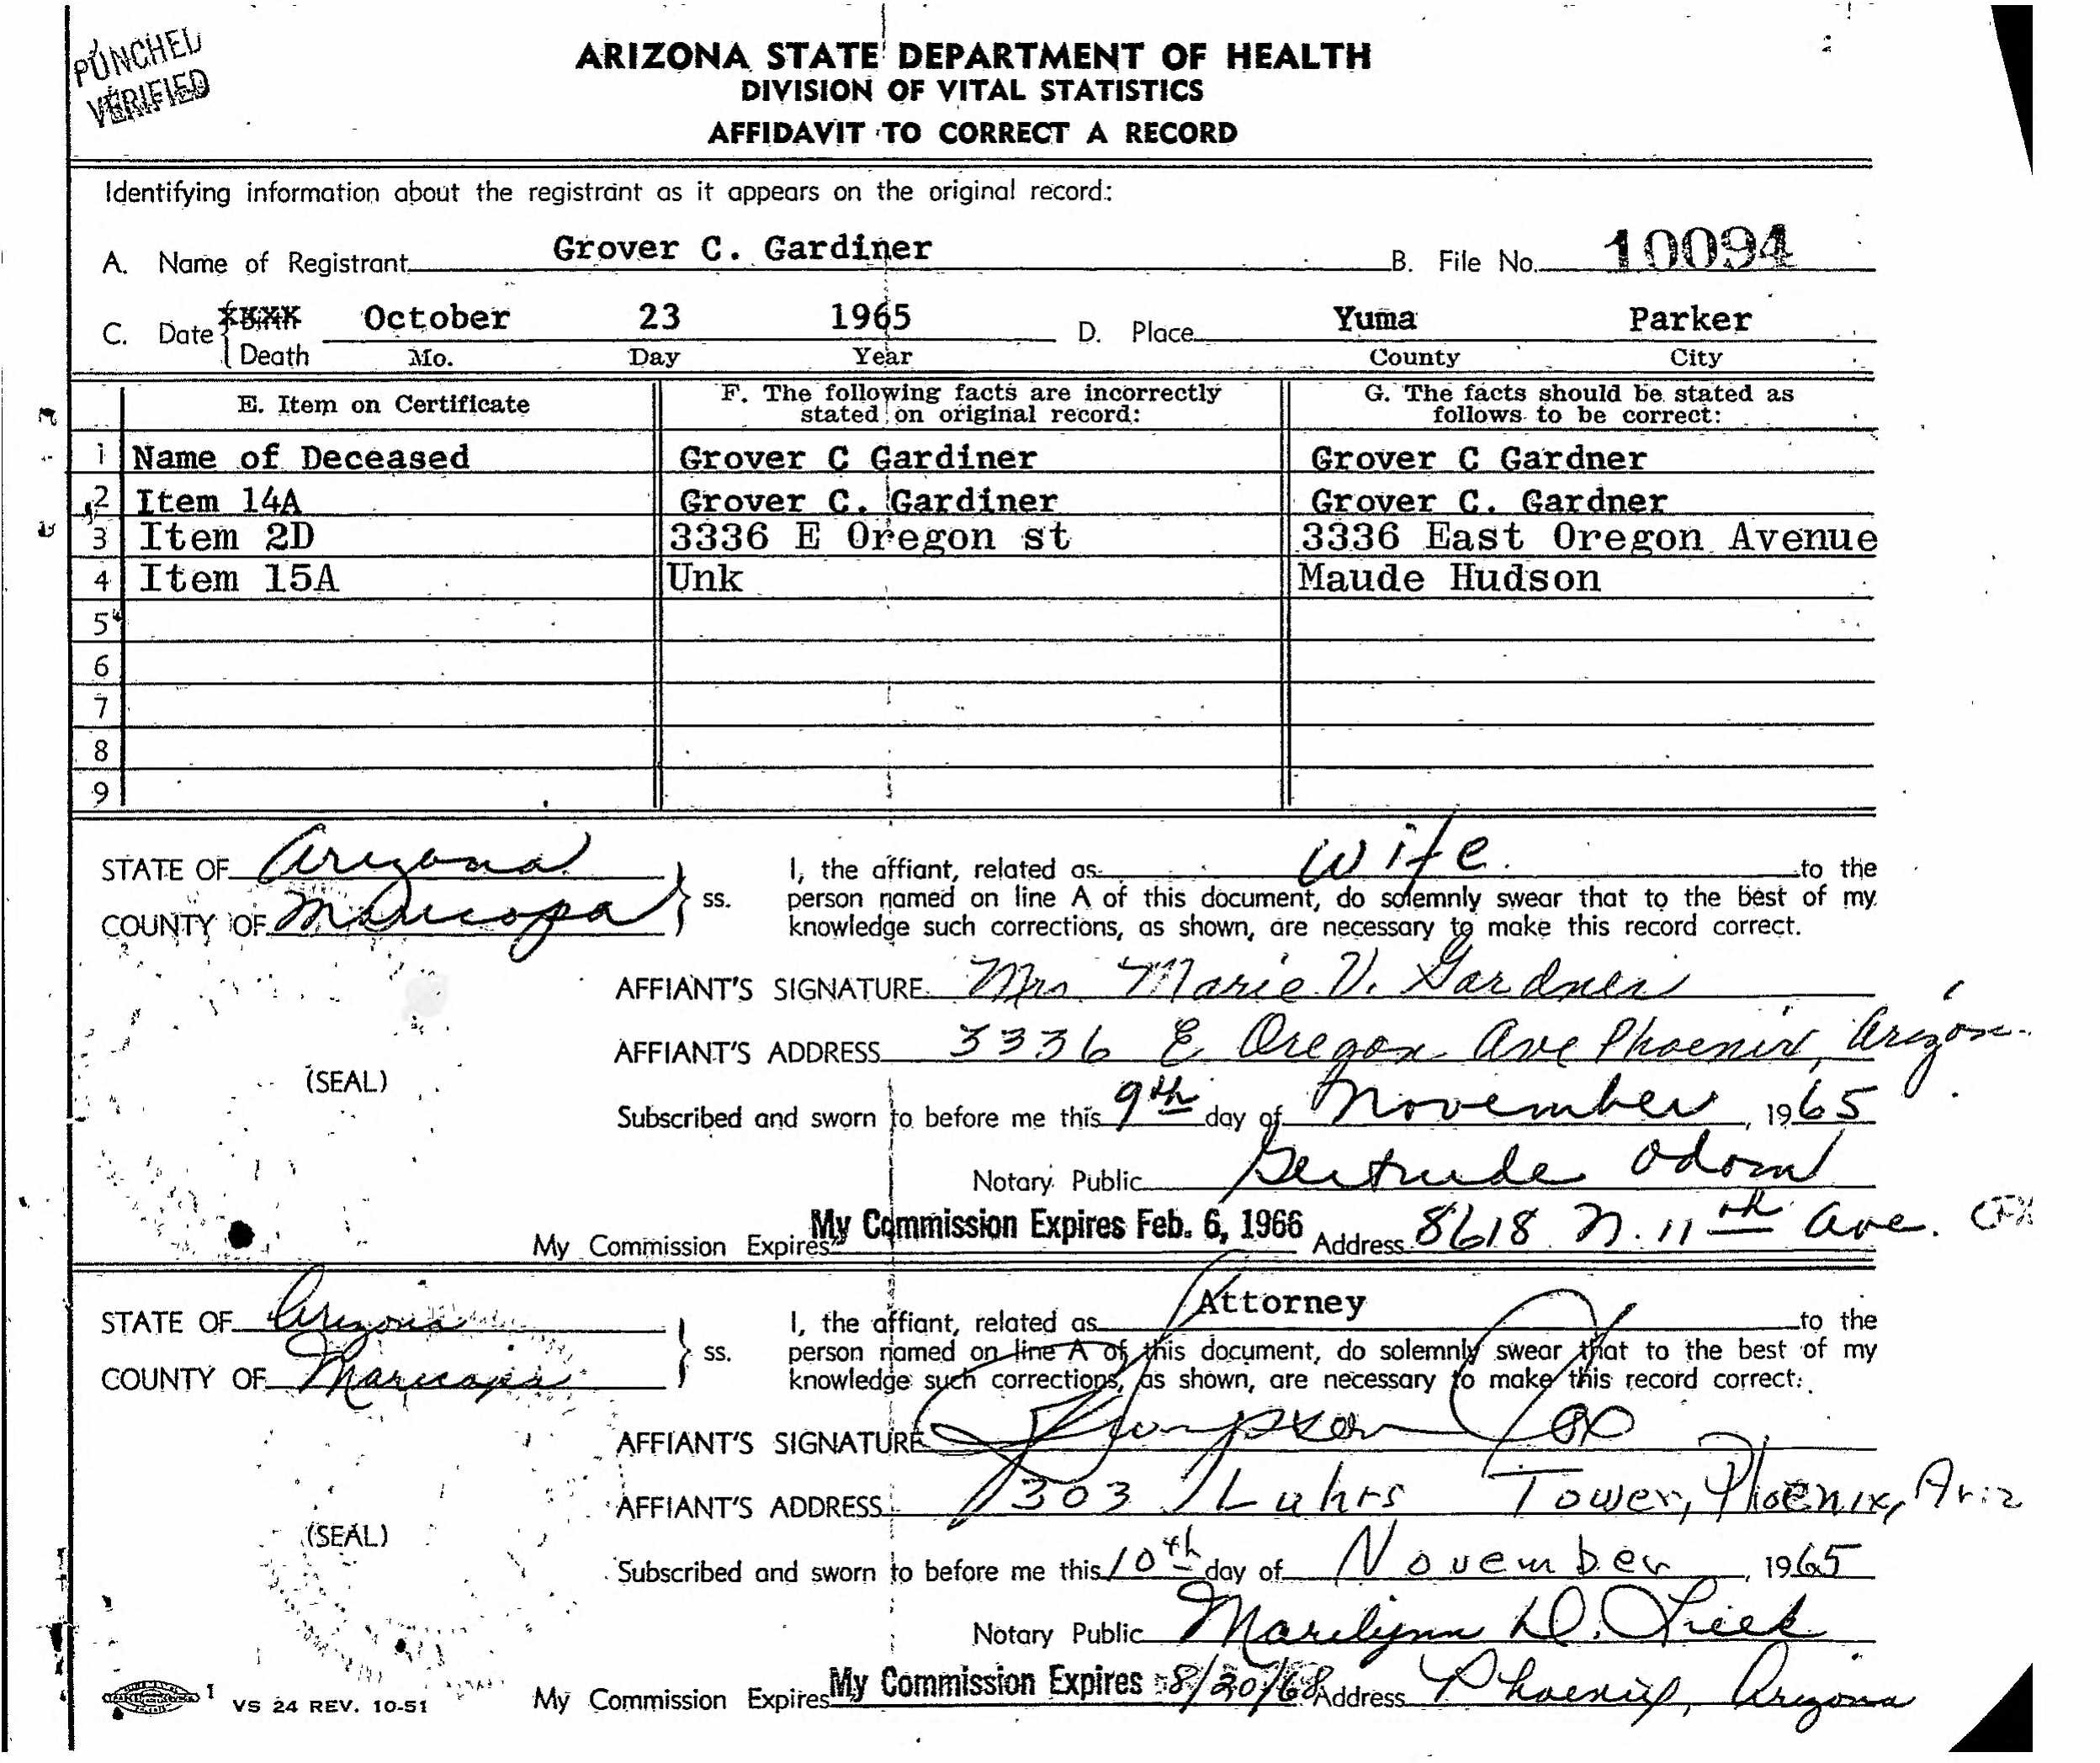 PUNCHED
VERIFIED
ARIZONA STATE DEPARTMENT OF HEALTH
DIVISION OF VITAL STATISTICS
AFFIDAVIT TO CORRECT A RECORD
Identifying information about the registrant as it appears on the original record:
A. Name of Registrant Grover C. Gardiner B. File No. 10094
C. Date { Birth Death October 23 1965 D. Place Yuma Parker
Mo. Day Year County City
E. Item on Certificate F. The following facts are incorrectly stated on original record: G. The facts should be stated as follows to be correct:
1 Name of Deceased Grover C Gardiner Grover C Gardner
2 Item 14A Grover C. Gardiner Grover C. Gardner
3 Item 2D 3336 E Oregon st 3336 East Oregon Avenue
4 Item 15A Unk Maude Hudson
5
6
7
8
9
STATE OF Arizona } ss. I, the affiant, related as wife to the
COUNTY OF Maricopa person named on line A of this document, do solemnly swear that to the best of my
knowledge such corrections, as shown, are necessary to make this record correct.
AFFIANT'S SIGNATURE Mrs. Marie V. Gardner
AFFIANT'S ADDRESS 3336 E Oregon Ave Phoenix, Arizon
(SEAL)
Subscribed and sworn to before me this 9th day of November, 1965
Notary Public Gertrude Odom
My Commission Expires My Commission Expires Feb. 6, 1966 Address 8618 N. 11th Ave.
STATE OF Arizona } ss. I, the affiant, related as Attorney to the
COUNTY OF Maricopa person named on line A of this document, do solemnly swear that to the best of my
knowledge such corrections, as shown, are necessary to make this record correct.
AFFIANT'S SIGNATURE
AFFIANT'S ADDRESS 303 Luhrs Tower, Phoenix, Ariz
(SEAL)
Subscribed and sworn to before me this 10th day of November, 1965
Notary Public Marilynn D.
My Commission Expires My Commission Expires 8/20/68 Address Phoenix, Arizona
VS 24 REV. 10-51